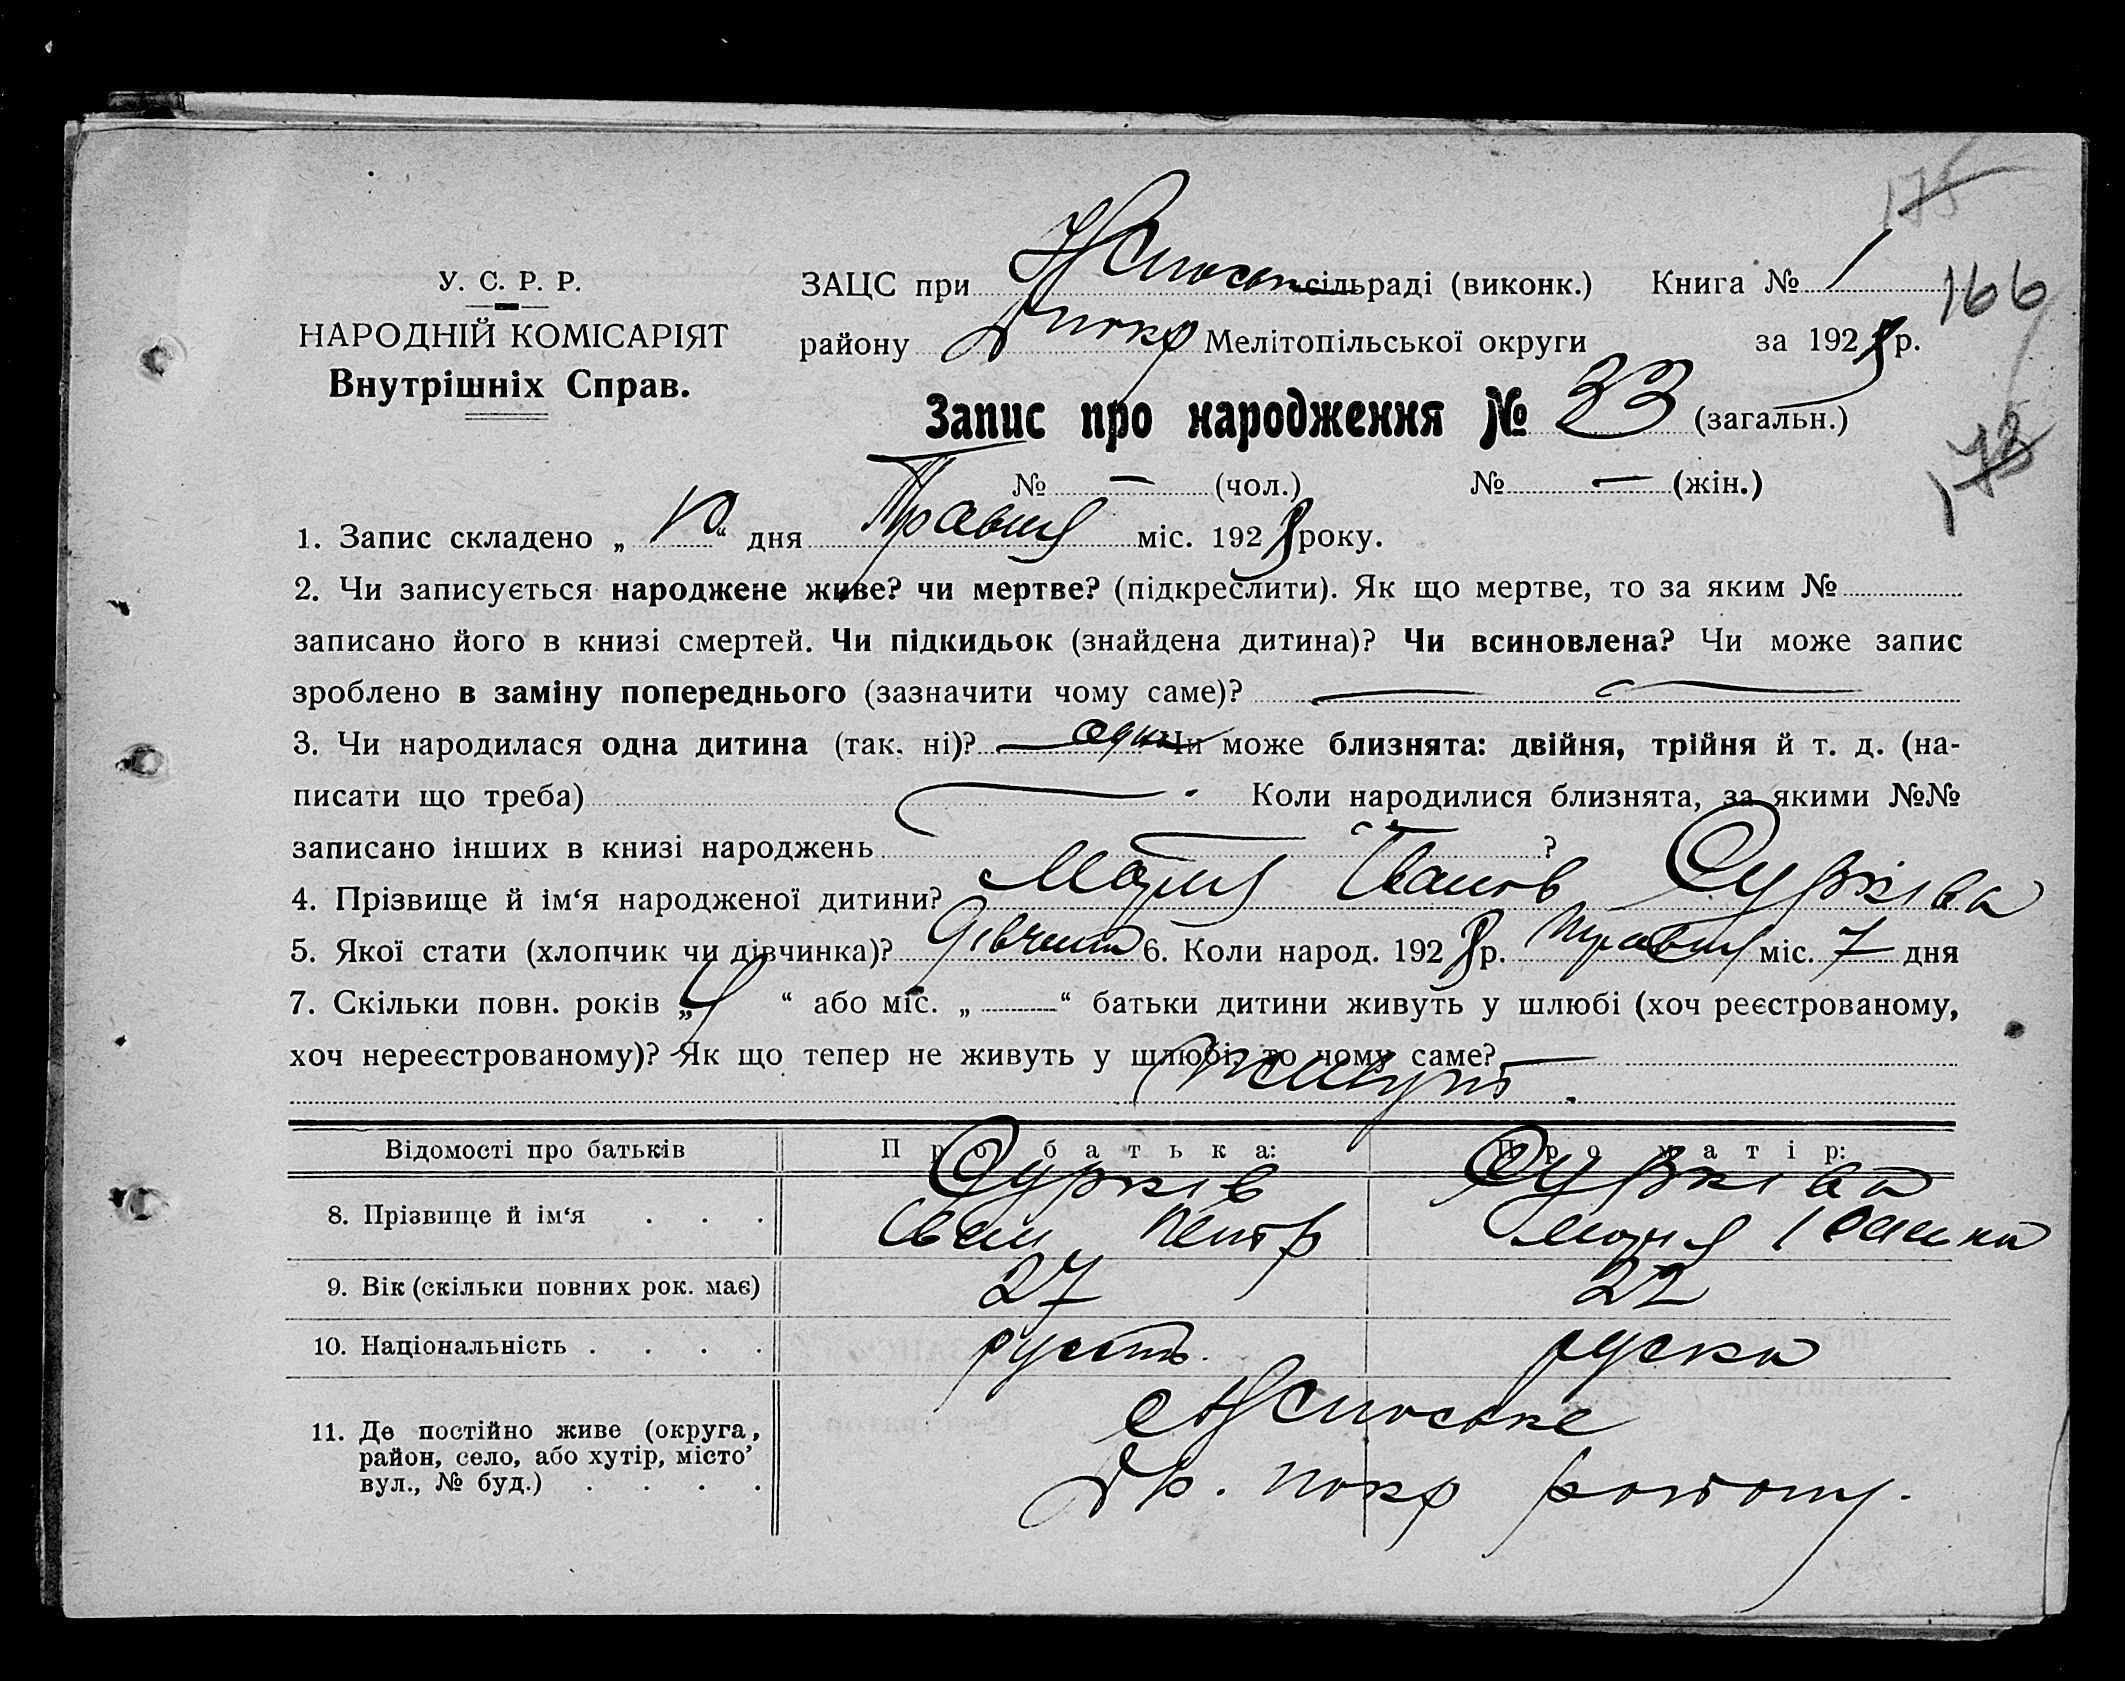 175
У. С. Р. Р.
НАРОДНІЙ КОМІСАРІЯТ
Внутрішніх Справ.
ЗАЦС при сільраді (виконк.) Книга № 1
166
району Мелітопільської округи за 1928 р.
Запис про народження № 33 (загальн.)
173
№ — (чол.) № — (жін.)
1. Запис складено „10“ дня Травня міс. 1928 року.
2. Чи записується народжене живе? чи мертве? (підкреслити). Як що мертве, то за яким №
записано його в книзі смертей. Чи підкидьок (знайдена дитина)? Чи всиновлена? Чи може запис
зроблено в заміну попереднього (зазначити чому саме)? —
3. Чи народилася одна дитина (так, ні)? одна Чи може близнята: двійня, трійня й т. д. (на-
писати що треба) — Коли народилися близнята, за якими №№
записано інших в книзі народжень — ?
4. Прізвище й ім‘я народженої дитини? Марія Іванов Сурківа
5. Якої стати (хлопчик чи дівчинка)? Дівчина 6. Коли народ. 1928 р. Травня міс. 7 дня
7. Скільки повн. років „4“ або міс. „ “ батьки дитини живуть у шлюбі (хоч реєстрованому,
хоч нереєстрованому)? Як що тепер не живуть у шлюбі, то чому саме? —
живуть.
Відомості про батьків Про батька: Про матір:
8. Прізвище й ім‘я . . . Сурків Сурківа
Іван Петр Марія Іванна
9. Вік (скільки повних рок. має) 27 22
10. Національність . . . . руска
11. Де постійно живе (округа,
район, село, або хутір, місто’
вул., № буд.) . . . .
покр району.